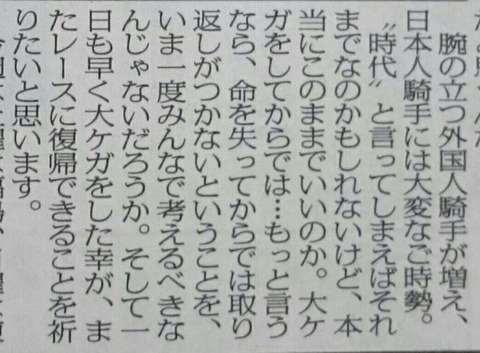 腕の立つ外国人騎手が増え、
日本人騎手には大変なご時勢。
〝時代〟と言ってしまえばそれ
までなのかもしれないけど、本
当にこのままでいいのか。大ケ
ガをしてからでは…もっと言う
なら、命を失ってからでは取り
返しがつかないということを、
いま一度みんなで考えるべきな
んじゃないだろうか。そして一
日も早く大ケガをした幸が、ま
たレースに復帰できることを祈
りたいと思います。